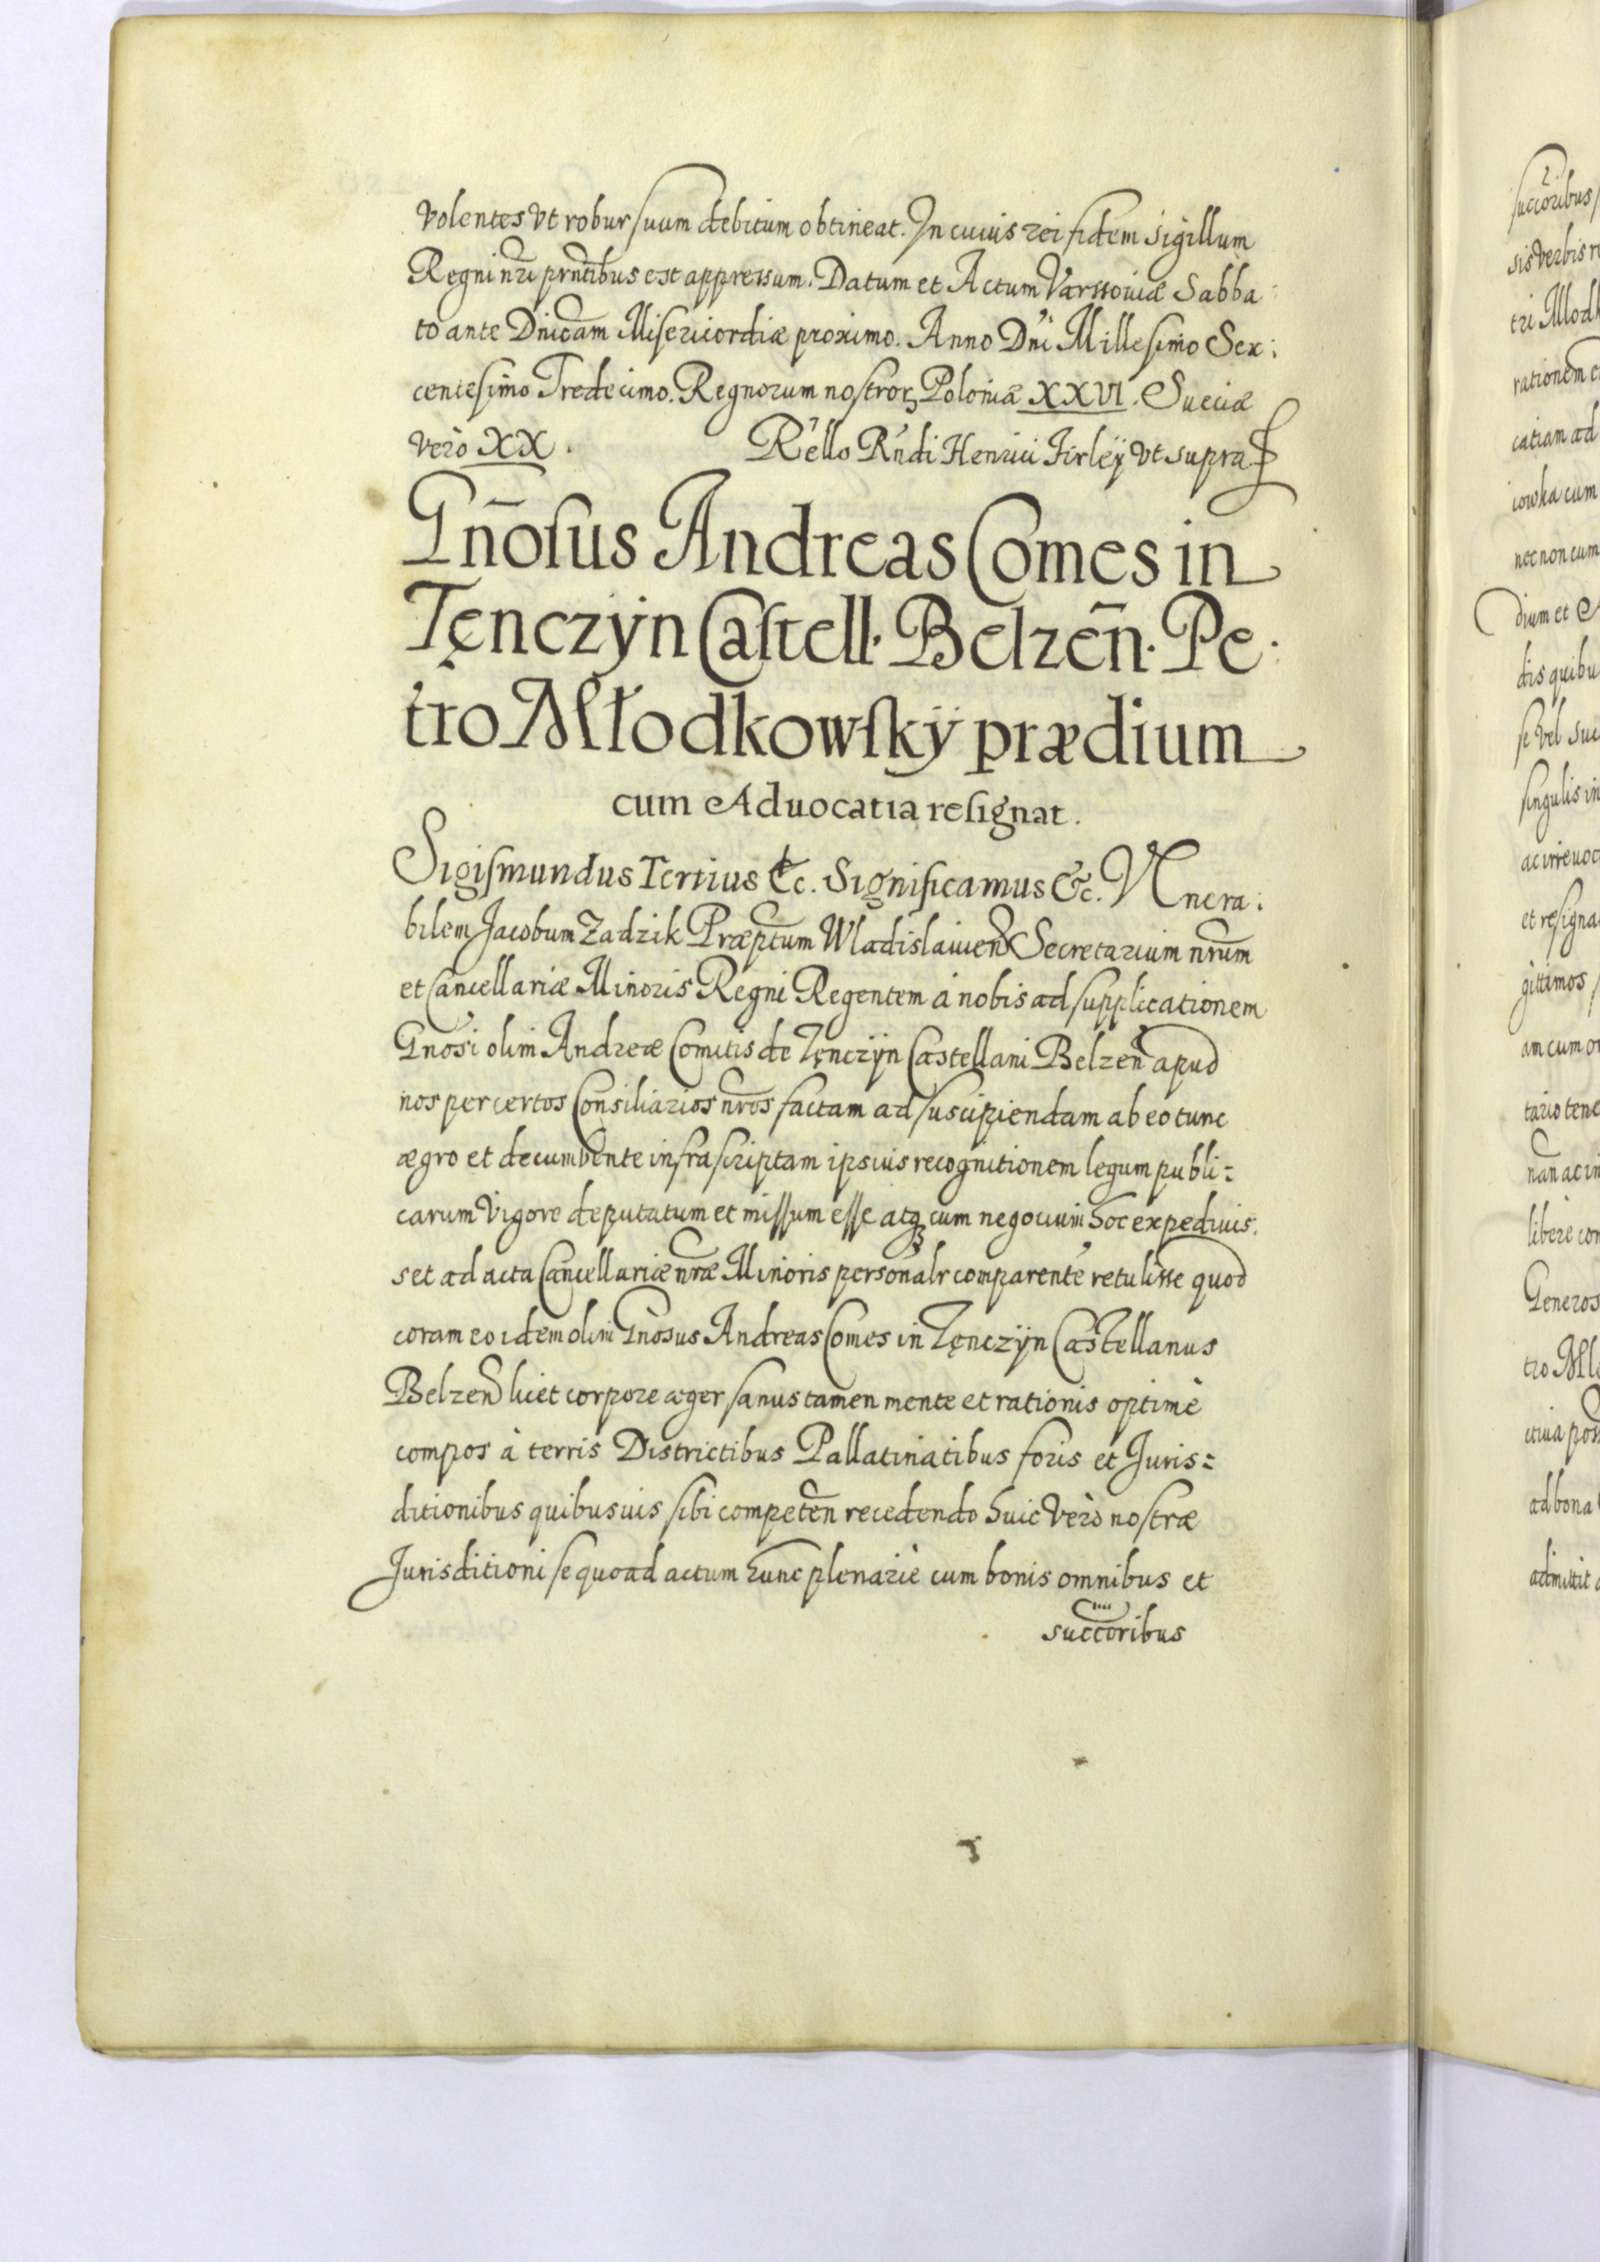 volentes vt robur suum debitum obtineat. In cuius rei fidem sigillum
Regni nrĩ prntĩbus est appressum. Datum et Actum Varssoviæ Sabba
to ante Dnicam Misericordiæ proximo. Anno Dnĩ Millesimo Sex:
centesimo Tredecimo. Regnorum nostroꝝ Poloniæ XXVI. Sueciæ
verò XX.
Rello Rndi Henrici Firlеÿ vt supra
Gñosus Andreas Comes in
Tęnczÿn Castell. Belzeñ. Pe:
tro Młodkowskÿ prædium
cum Aduocatia resignat.
Sigismundus Tertius &c. Significamus &c. Venera:
bilem Jacobum Zadzik Præptum Wladislauien Secretarium nrum
et Cancellariæ Minoris Regni Regentem à nobis ad supplicationem
Gnosi olim Andreæ Comitis de Tęnczÿn Castellani Belzen apud
nos per certos Consiliarios nros factam ad suscipiendam ab eo tunc
ægro et decumbente infrascriptam ipsius recognitionem legum publi=
carum vigore deputatum et missum esse atqꝫ cum negocium hoc expediuis:
set ad acta Cancellariæ nræ Minoris personalr comparente retulisse quod
coram eo idem olim Gnosus Andreas Comes in Tęnczÿn Castellanus
Belzen licet corpore æger sanus tamen mente et rationis optimè
compos à terris Districtibus Pallatinatibus foris et Juris=
ditionibus quibusuis sibi competen recedendo huic verò nostræ
Jurisditioni se quoad actum hunc plenariè cum bonis omnibus et
succoribus
succoribus
sis verbis
tri Młod
rationem
catiam ad
iowka cum
nec non cum
dium et
dis quibu
se vel suc
singulis in
ac irreuoc
et resigna
gittimos
am cum
tario tene
nan ac in
liberè con
Generos
tro Mło
ciuia
ad bona
admittit